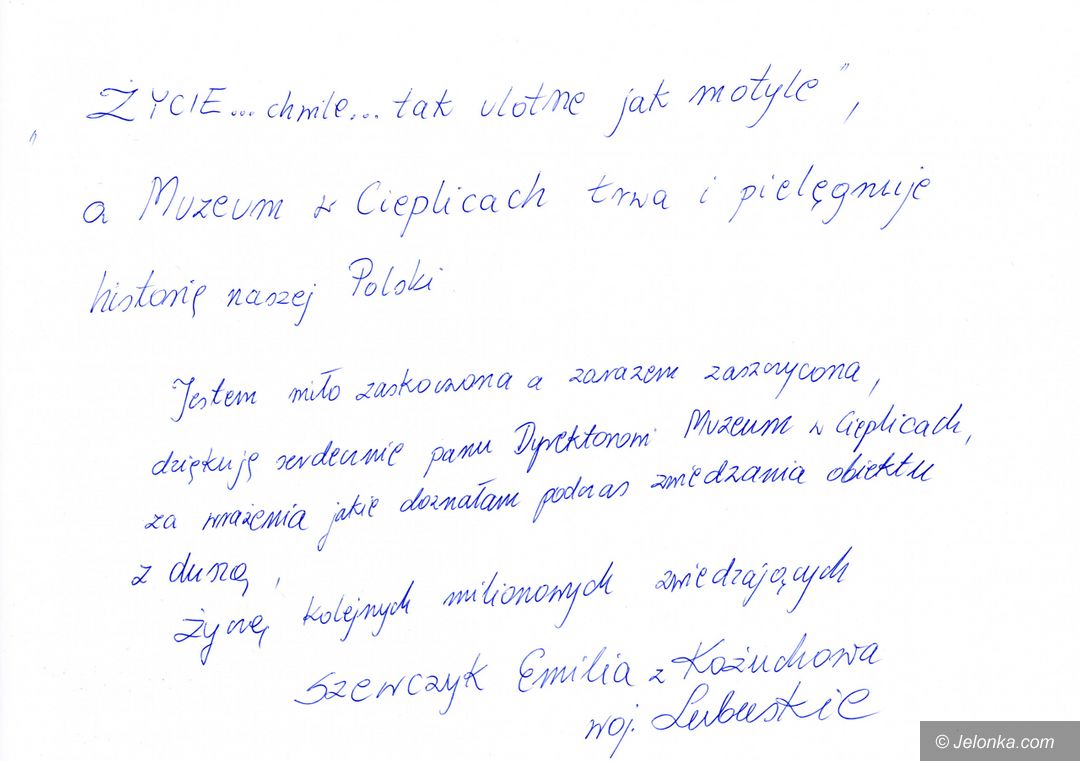 „ ŻYCIE... chwile... tak ulotne jak motyle",
a Muzeum w Cieplicach trwa i pielęgnuje
historię naszej Polski
Jestem miło zaskoczona a zarazem zaszczycona,
dziękuję serdecznie panu Dyrektorowi Muzeum w Cieplicach,
za wrażenia jakie doznałam podczas zwiedzania obiektu
z duszą,
Życzę kolejnych milionowych zwiedzających
Szewczyk Emilia z Kożuchowa
woj. Lubuskie
© Jelonka.com